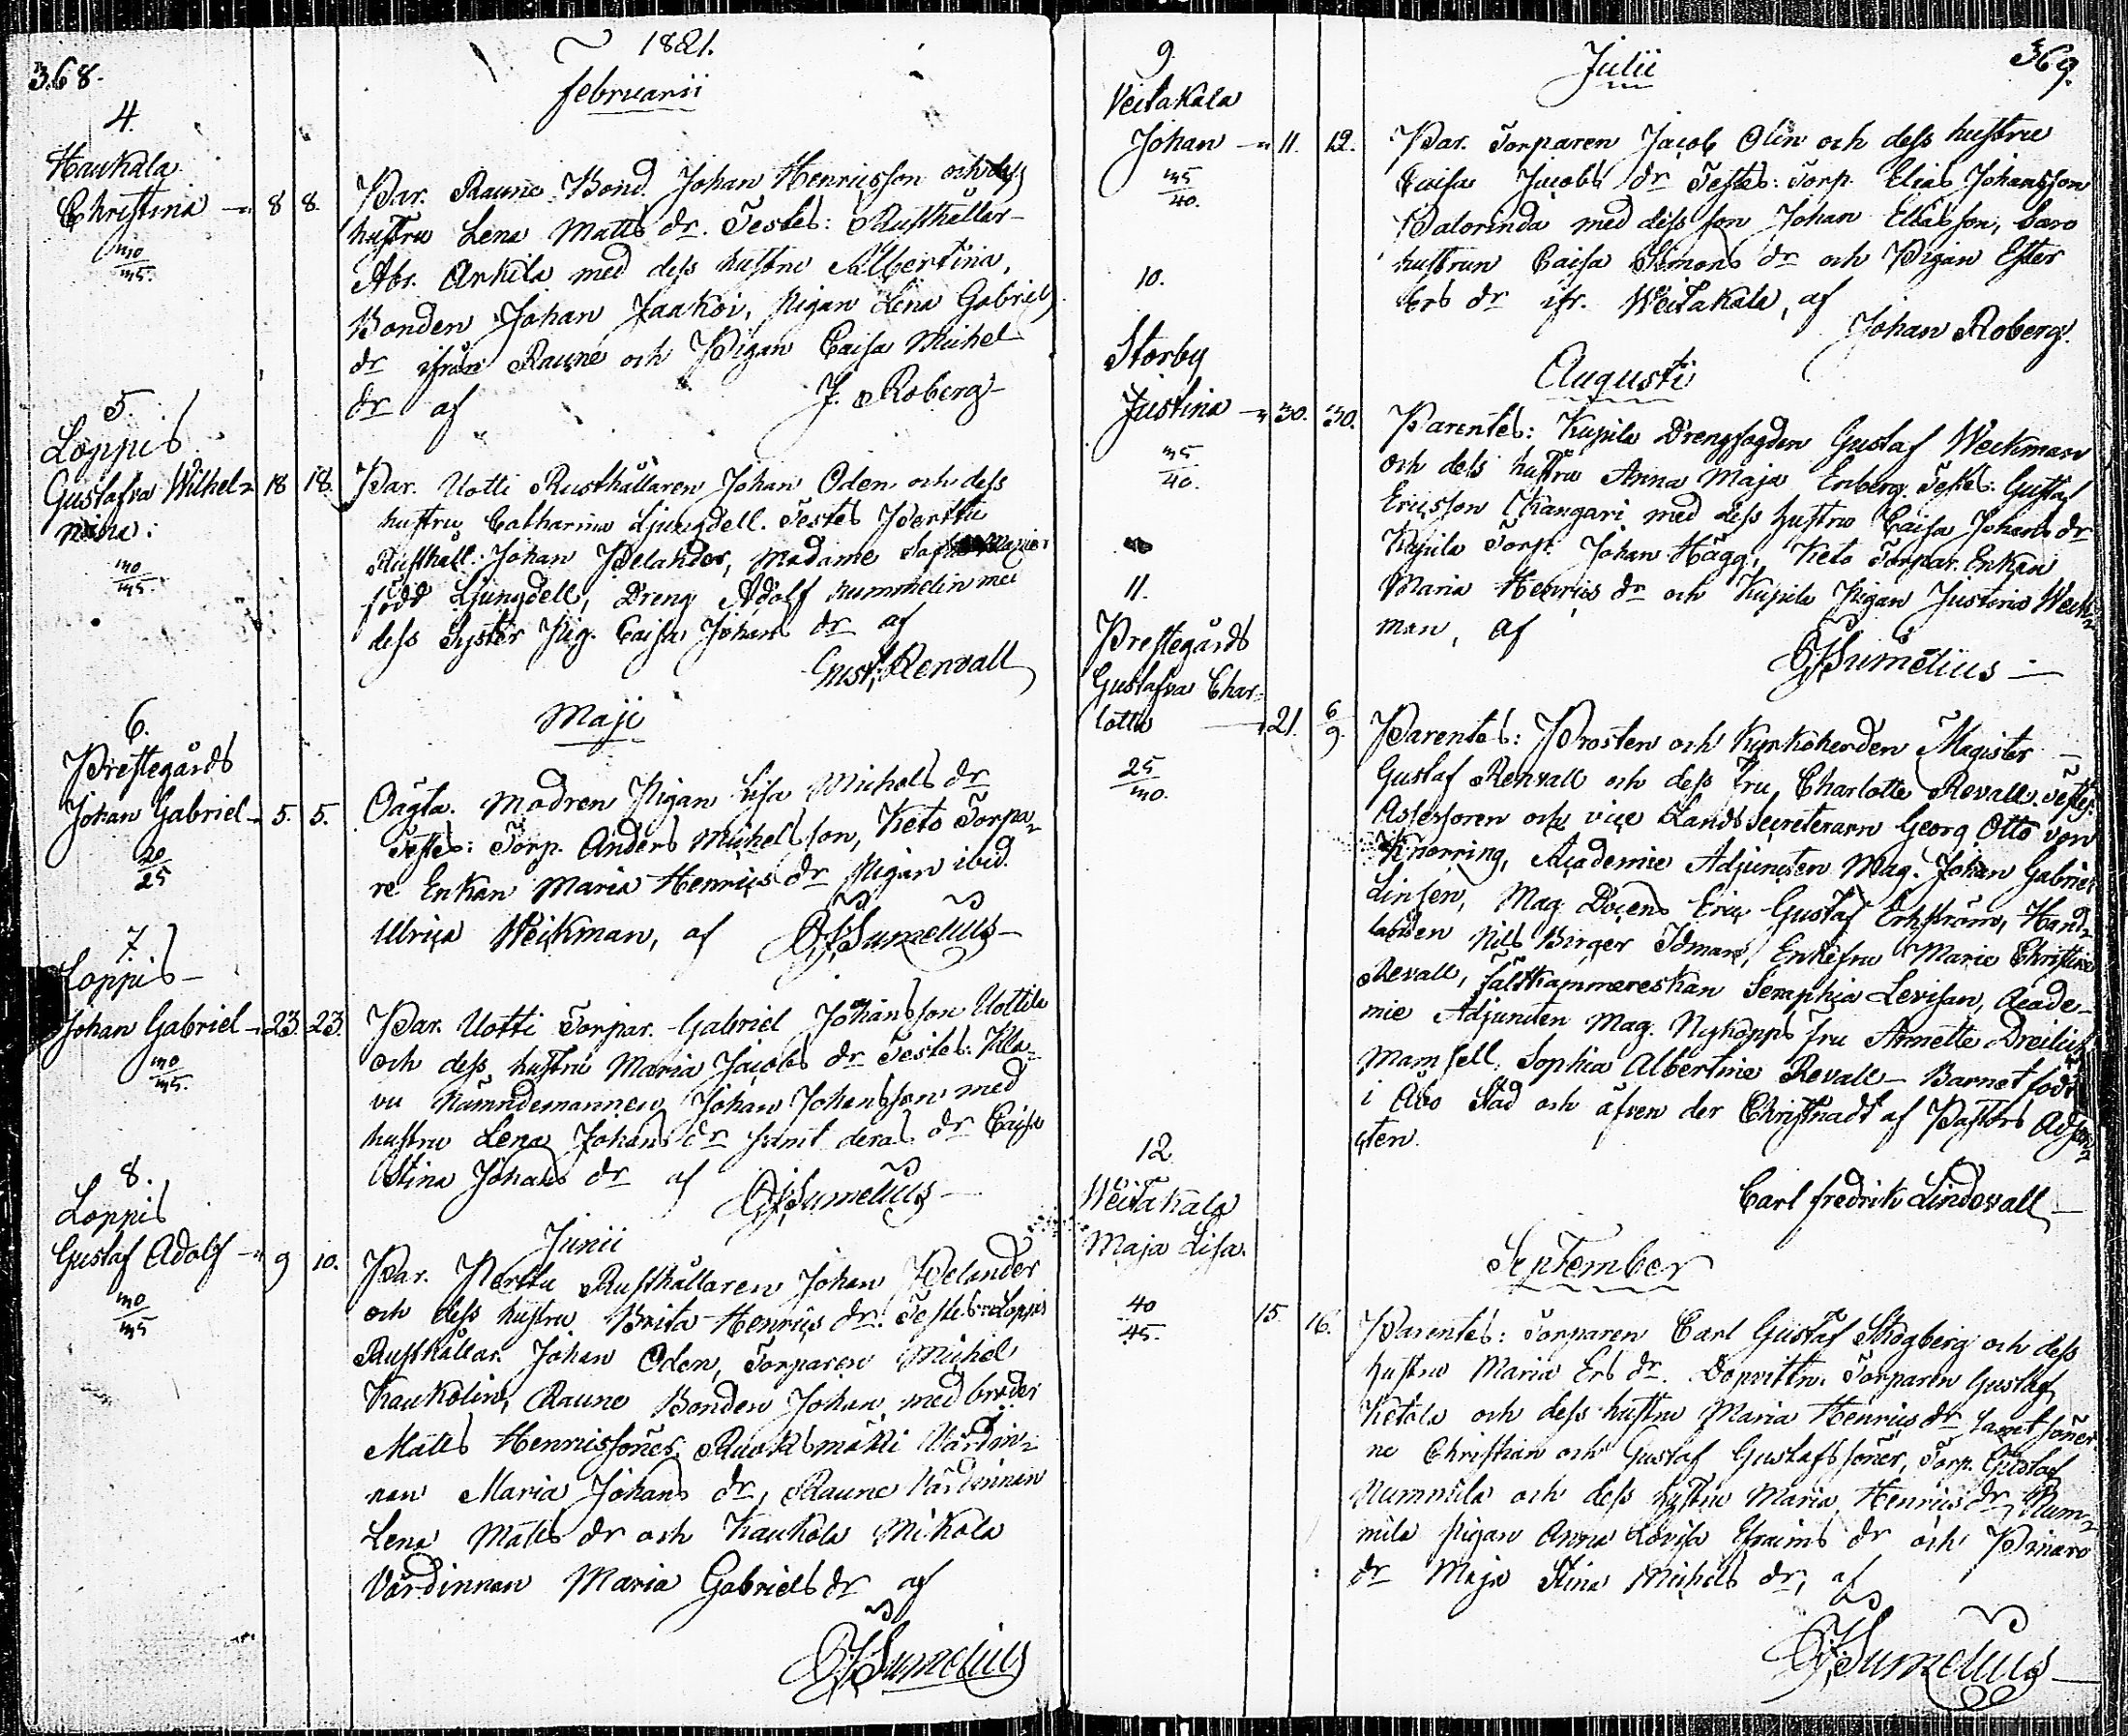 368.
1821.
februarii
4.
Haukala
Christina 8 8.
30
35.
Par. Raune Bond. Johan Henricsson och dess
hustru Lena Matts dr. Testes: Rusthållar-
Abr. Ankila med dess hustru Albertina,
Bonden Johan Jaakoi, pigan Lena Gabriels
dr ifrån Raune och Pigan Caisa Michel
dr af J. Roberg
5.
Loppis
Gustafva Wilhel- 18 18.
mina:
30
35.
Par. Uotti Rusthållaren Johan Oden och dess
hustru Catharina Ljungdell. Testes Perttu
Rusthåll. Johan Pelander, Madame
född Ljungdell, Dreng Adolf Nummelin med
dess Syster Pig. Caisa Johans dr af
Gust. Renvall
Maji
6.
Prestegårds
Johan Gabriel 5. 5.
20
25
Oägta. Modren Pigan Lisa Michels dr
Testes: Torp. Anders Michelsson, Keto Torpa-
re Enkan Maria Henrics dr Pigan ibid.
Ulrica Weikman, af G J Sumelius
7.
Loppis
Johan Gabriel 23. 23.
30
35.
Par. Uotti Torpar. Gabriel Johansson Uottila
och dess hustru Maria Jacobs dr Testes: Kila-
vu Nämndemannen Johan Johansson med
hustru Lena Johans dr samt deras dr Caisa
Stina Johans dr af G J Sumelius
Junii
8.
Loppis
Gustaf Adolf 9 10.
30
35
Par. Perttu Rusthållaren Johan Pelander
och dess hustru Brita Henrics dr. Testes: Loppis
Rusthållar. Johan Oden, Torparen Michel
Kaukolin, Raune Bonden Johan med broder
Matts Henricssöner, Ruoksmäki Värdin-
nan Maria Johans dr, Raune Värdinnan
Lena Matts dr och Kaukola Mikola
Värdinnan Maria Gabriels dr af
G J Sumelius
369.
Julii
9.
Veitakala
Johan 11. 12.
35
40.
Par. Torparen Jacob Olin och dess hustru
Caisa Jacobs dr Testes: Torp. Elias Johansson
Palorinda med dess son Johan Eliasson, Saro
hustrun Caisa Simons dr och Pigan Ester
Ers dr ifr. Weitakala, af
Johan Roberg.
Augusti
10.
Storby
Justina 30. 30.
35
40.
Parentes: Kupila Drengfogden Gustaf Weckman
och dess hustru Anna Maja Enberg. Testes: Gustaf
Ericsson Kangari med dess hustru Caisa Johans dr
Kupila Torp. Johan Hägg, Keto Torpar. Enkan
Maria Henrics dr och Kupila Pigan Justina Weck-
man, af
G J Sumelius
11.
Prestegårds
Gustafva Char-
lotta 21. 6
9.
25
30.
Parentes: Prosten och Kyrkoherden Magister
Gustaf Renvall och dess Fru Charlotte Revall. Testes:
Assessoren och vice Lands Secreteraren Georg Otto von
Knorring, Academie Adjuncten Mag. Johan Gabriel
Linsen, Mag. Docens Eric Gustaf Ehrström, Hand-
landen Nils Birger Idman, Enkefru Marie Christine
Revall, Fältkammereskan Seraphia Levisan, Acade-
mie Adjuncten Mag. Nykopps Fru Annette Dreilick
Mamsell Sophia Albertine Revall. Barnet född
i Åbo Stad och äfven der Christnadt af Pastors Adjun-
cten.
Carl Fredrik Lindevall
September
12
Weitakala
Maja Lisa. 15 16.
40
45.
Parentes: Torparen Carl Gustaf Skogberg och dess
hustru Maria Ers dr. Dopvittn. Torparen Gustaf
Ketola och dess hustru Maria Henrics dr samt söner
ne Christian och Gustaf Gustafssöner, Torp. Gustaf
Nummila och dess hustru Maria Henrics dr, Num-
mila Pigan Anna Lovisa Efraims dr och
dr Maja Stina Michels dr, af
G J Sumelius